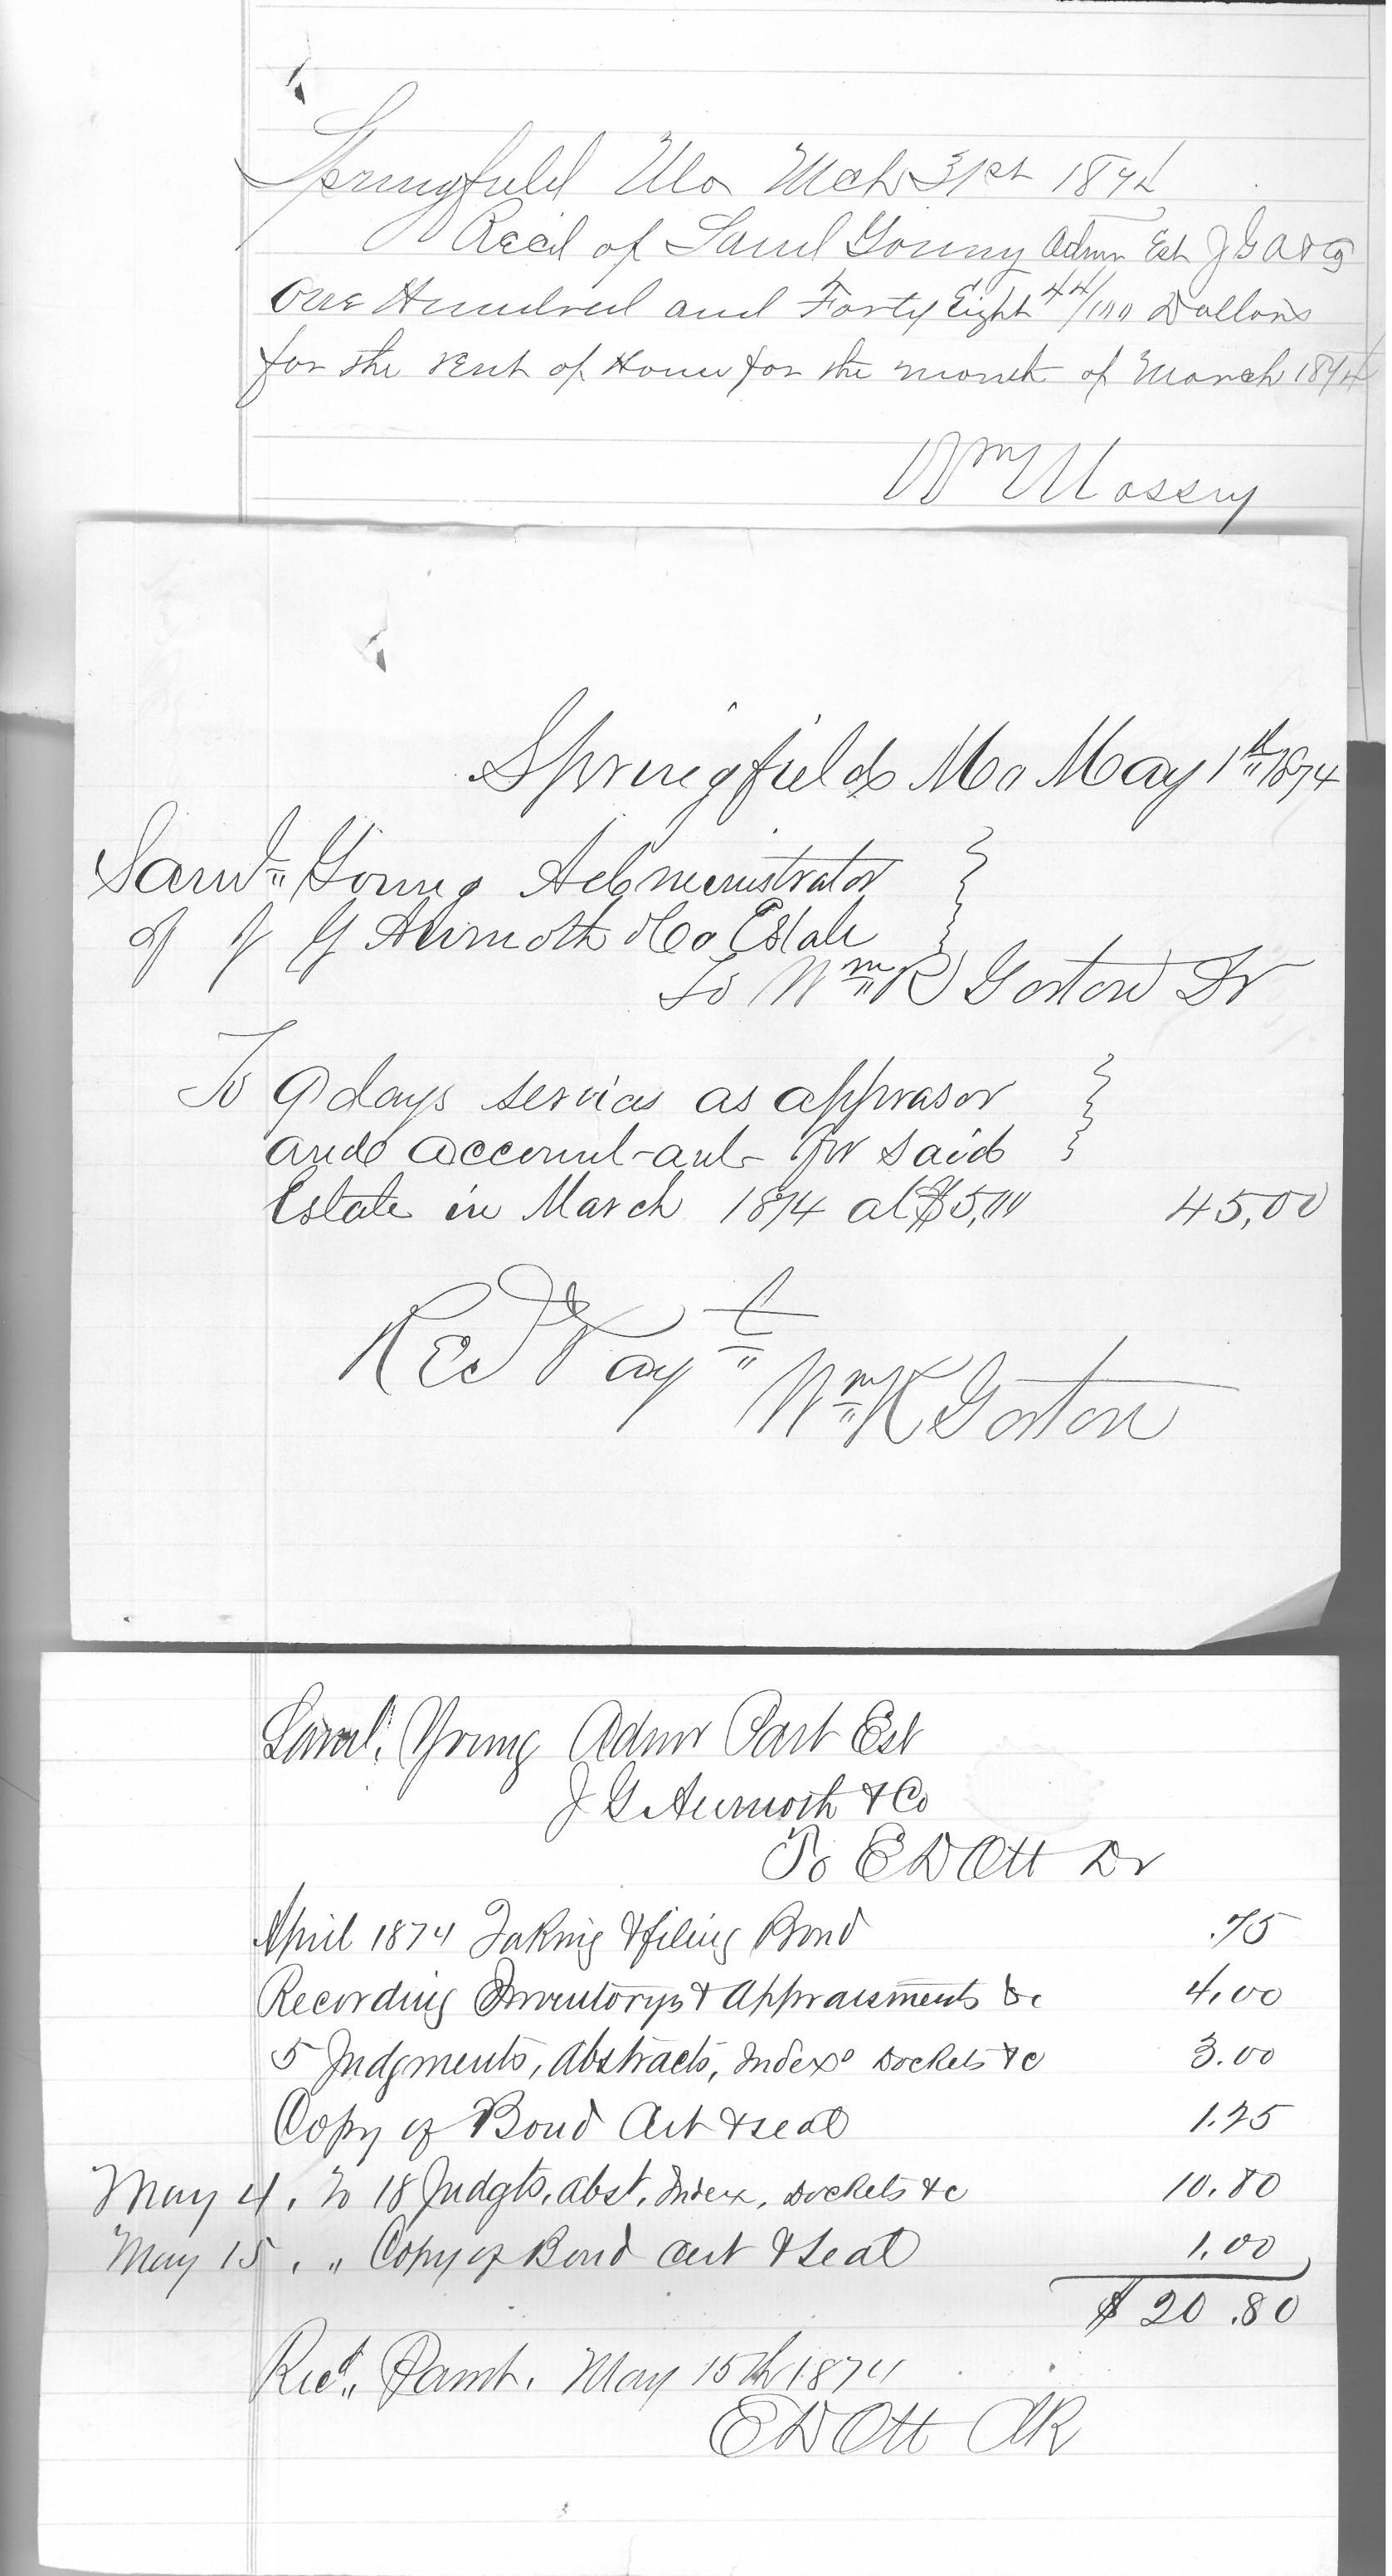 Springfield Mo Mch 31st 1874
Recd of Saml Young Admr Est J G A & Co
One Hundred and Forty Eight 44/100 Dollars
for the rent of House for the month of March 1874
Wm Massey
Springfield Mo May 1st 1874
Saml Young Administrator
of J G Aumoth & Co Estate
To Wm R Gorton Dr
To 9 days servics as apprasor
and account-ant for said
Estate in March 1874 at $5,00 45,00
Recd Payt
Wm R Gorton
Saml. Young Admr Part Est
J G Aumoth & Co
To E D Ott Dr
April 1874 Taking & filing Bond .75
Recording Inventorys & Appraisments &c 4.00
5 Judgments, Abstracts, Index Dockets &c 3.00
Copy of Bond Crt & seal 1.25
May 4, To 18 Judgts, abst, Index, Dockets &c 10.80
May 15, " Copy of Bond Cert & Seal 1.00
$ 20.80
Recd. Pamt. May 15th 1874
E D Ott Clk